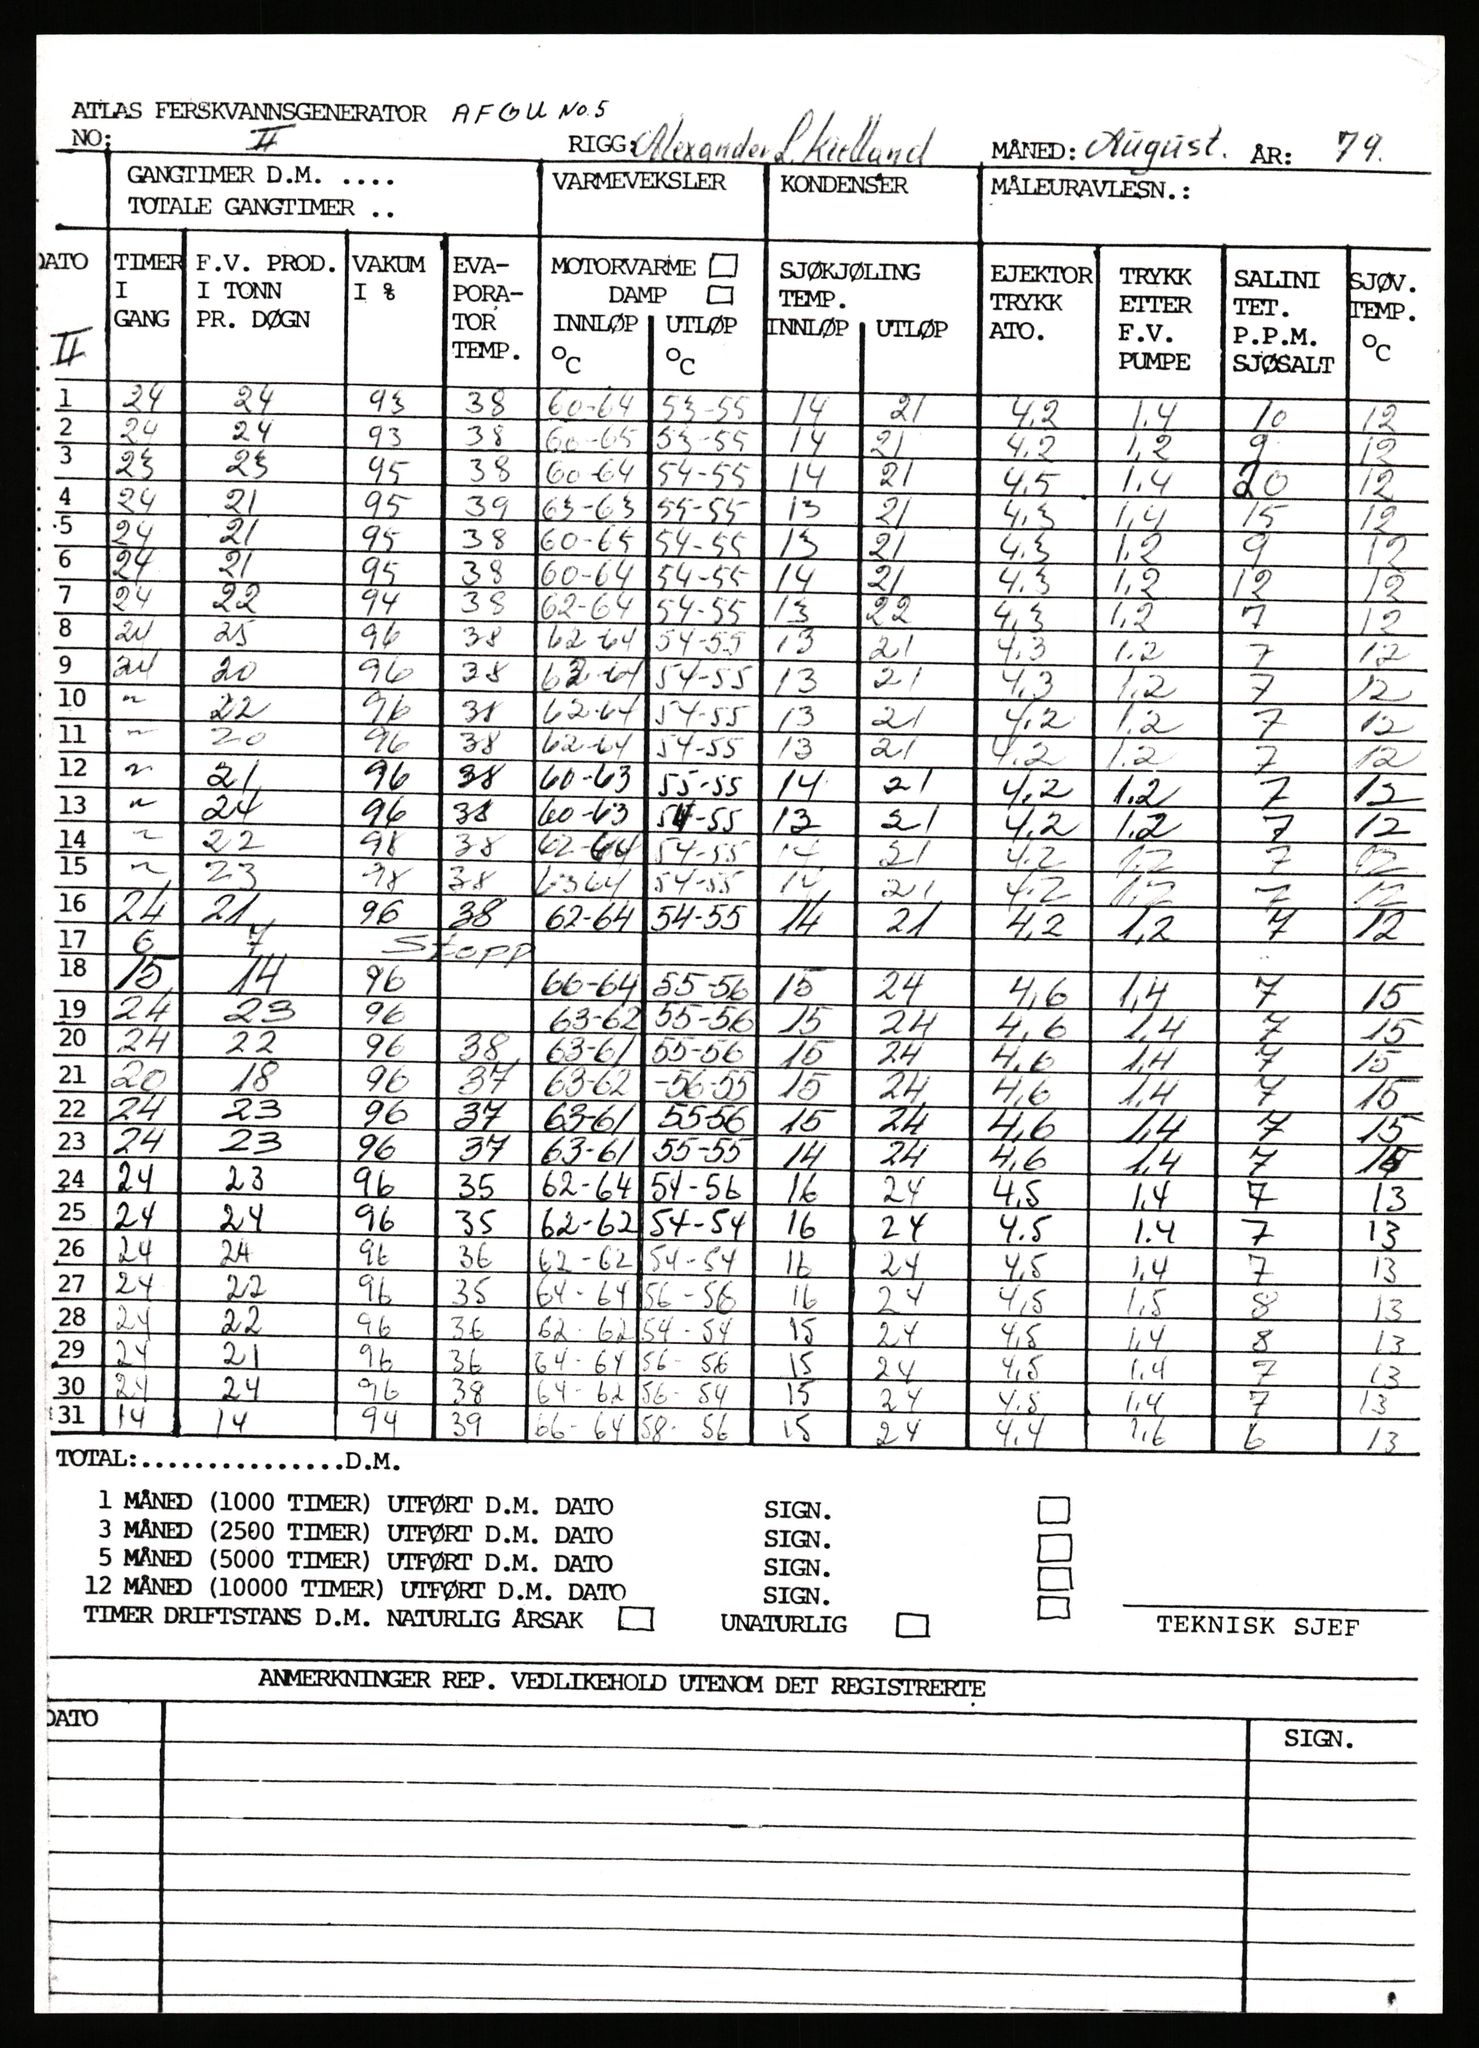 ATLAS FERSKVANNSGENERATOR AFGU No. 5
NO: II RIGG: Alexander L. Kielland MÅNED: August. ÅR: 79.
GANGTIMER D.M. .... VARMEVEKSLER KONDENSER MÅLEURAVLESN.:
TOTALE GANGTIMER ..
DATO TIMER F.V. PROD. VAKUM EVA- MOTORVARME SJØKJØLING EJEKTOR TRYKK SALINI SJØV.
I I TONN I % PORA- DAMP TEMP. TRYKK ETTER TET. TEMP.
GANG PR. DØGN TOR INNLØP UTLØP INNLØP UTLØP ATO. F.V. P.P.M. °C
II TEMP. °C °C PUMPE SJØSALT
1 24 24 93 38 60-64 53-55 14 21 4.2 1.4 10 12
2 24 24 93 38 60-65 53-55 14 21 4.2 1,2 9 12
3 23 23 95 38 60-64 54-55 14 21 4.5 1.4 20 12
4 24 21 95 39 63-63 55-55 13 21 4.3 1,4 15 12
5 24 21 95 38 60-65 54-55 13 21 4.3 1.2 9 12
6 24 21 95 38 60-64 54-55 14 21 4.3 1,2 12 12
7 24 22 94 38 62-64 54-55 13 22 4,3 1,2 7 12
8 24 25 96 38 62-64 54-55 13 21 4.3 1.2 7 12
9 24 20 96 38 62-64 54-55 13 21 4,3 1,2 7 12
10 ~ 22 96 38 62-64 54-55 13 21 4,2 1,2 7 12
11 ~ 20 96 38 62-64 54-55 13 21 4.2 1.2 7 12
12 ~ 21 96 38 60-63 55-55 14 21 4,2 1.2 7 12
13 ~ 24 96 38 60-63 54-55 13 21 4,2 1,2 7 12
14 ~ 22 98 38 62-64 54-55 14 21 4.2 1.2 7 12
15 ~ 23 98 38 6364 54-55 14 21 4.2 1.2 7 12
16 24 21 96 38 62-64 54-55 14 21 4,2 1,2 7 12
17 6 7 Stopp
18 15 14 96 66-64 55-56 15 24 4,6 1,4 7 15
19 24 23 96 63-62 55-56 15 24 4,6 1,4 7 15
20 24 22 96 38 63-61 55-56 15 24 4,6 1,4 7 15
21 20 18 96 37 63-62 -56-55 15 24 4,6 1,4 7 15
22 24 23 96 37 63-61 55-56 15 24 4,6 1,4 7 15
23 24 23 96 37 63-61 55-55 14 24 4,6 1,4 7 15
24 24 23 96 35 62-64 54-56 16 24 4,5 1,4 7 13
25 24 24 96 35 62-62 54-54 16 24 4.5 1.4 7 13
26 24 24 96 36 62-62 54-54 16 24 4,5 1,4 7 13
27 24 22 96 35 64-64 56-56 16 24 4,5 1,5 8 13
28 24 22 96 36 62-62 54-54 15 24 4,5 1,4 8 13
29 24 21 96 36 64-64 56-56 15 24 4,5 1,4 7 13
30 24 24 96 38 64-62 56-54 15 24 4.5 1,4 7 13
31 14 14 94 39 66-64 58-56 15 24 4.4 1,6 6 13
TOTAL:...............D.M.
1 MÅNED (1000 TIMER) UTFØRT D.M. DATO SIGN.
3 MÅNED (2500 TIMER) UTFØRT D.M. DATO SIGN.
5 MÅNED (5000 TIMER) UTFØRT D.M. DATO SIGN.
12 MÅNED (10000 TIMER) UTFØRT D.M. DATO SIGN.
TIMER DRIFTSTANS D.M. NATURLIG ÅRSAK UNATURLIG TEKNISK SJEF
ANMERKNINGER REP. VEDLIKEHOLD UTENOM DET REGISTRERTE
DATO SIGN.